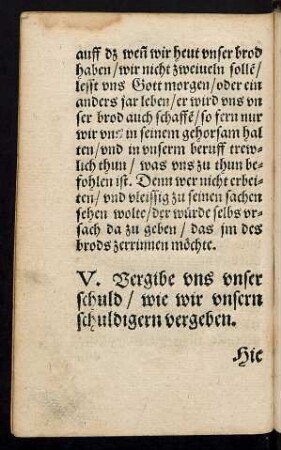 auff dz weñ wir heut vnser brod
haben/wir nicht zweiueln sollẽ/
lesst vns Gott morgen/oder ein
anders jar leben/er wird vns vn
ser brod auch schaffẽ/so fern nur
wir vns in seinem gehorsam hal
ten/vnd in vnserm beruff trew-
lich thun/was vns zu thun be-
fohlen ist. Denn wer nicht erbei-
ten/vnd vleissig zu seinen sachen
sehen wolte/der würde selbs vr-
sach da zu geben/das jm des
brods zerrinnen möchte.
V. Vergibe vns vnser
schuld/wie wir vnsern
schuldigern vergeben.
Hie